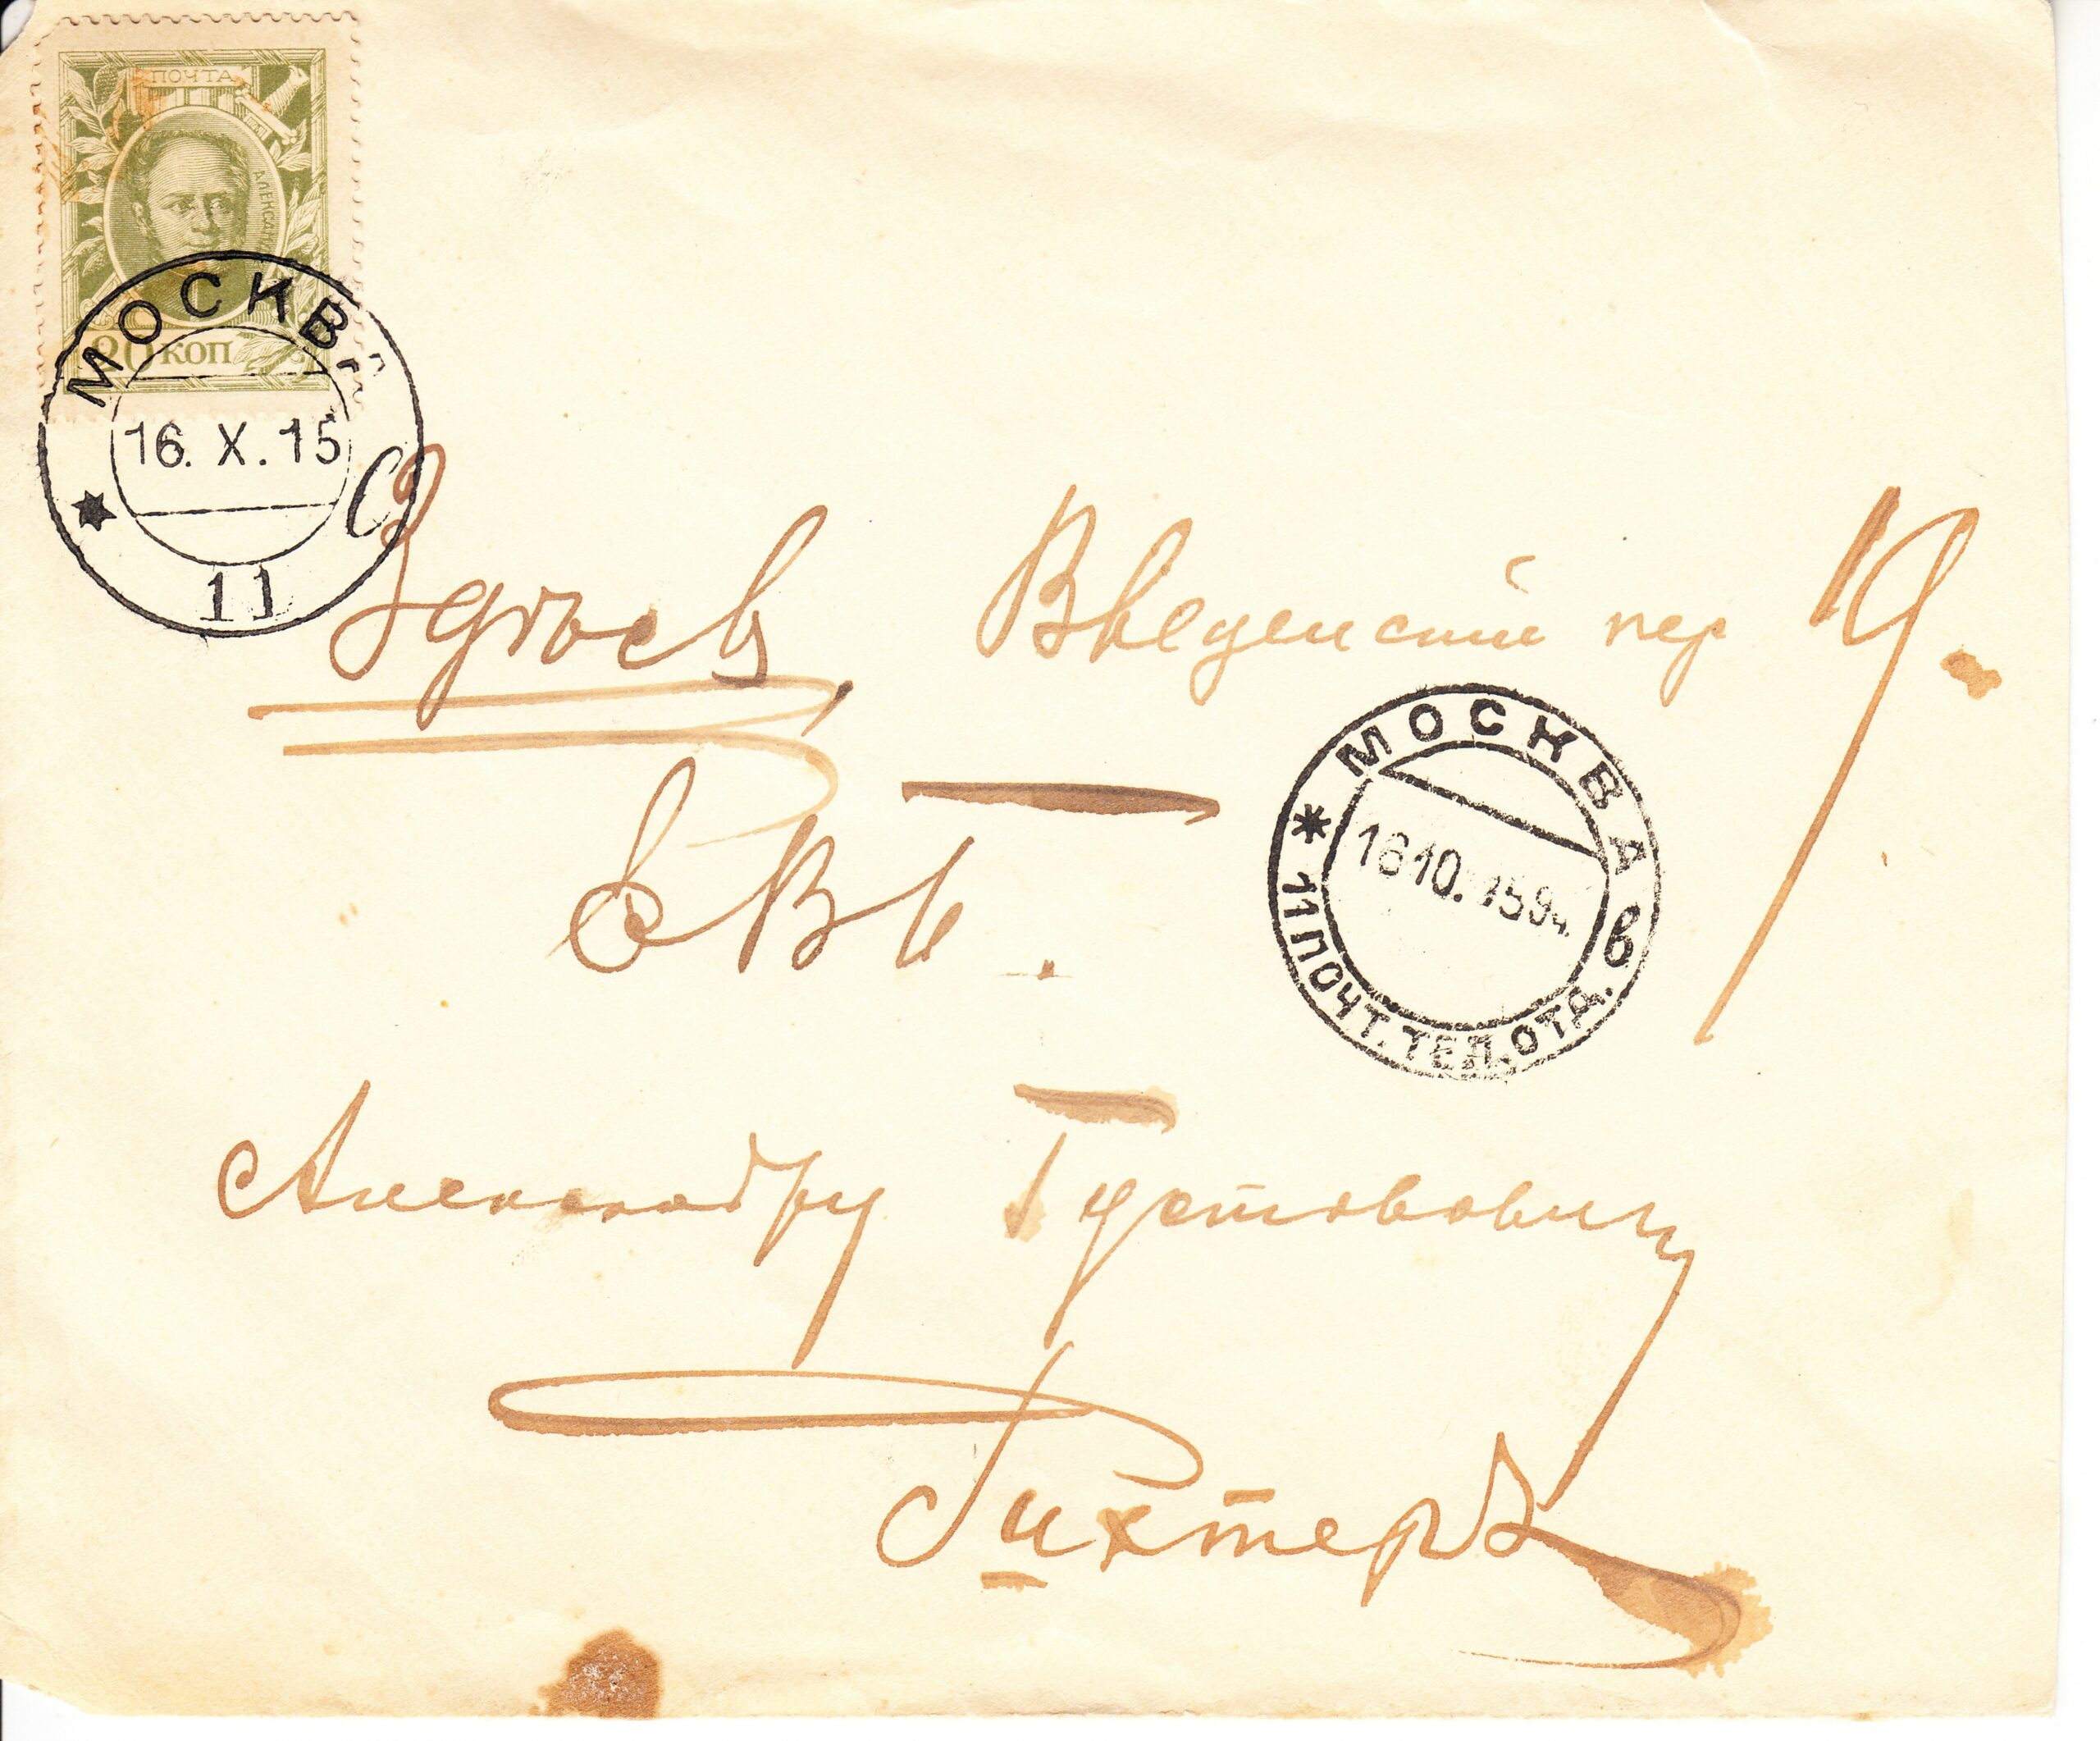 ПОЧТА
АЛЕКСАНДР
20 КОП
МОСКВА
16. X. 15
11
Здѣсь, Введенский пер 19.
ЕВБ.
МОСКВА
16 10. 15 9ч.
11 ПОЧТ. ТЕЛ. ОТД.
Александру Густавовичу
Рихтеръ